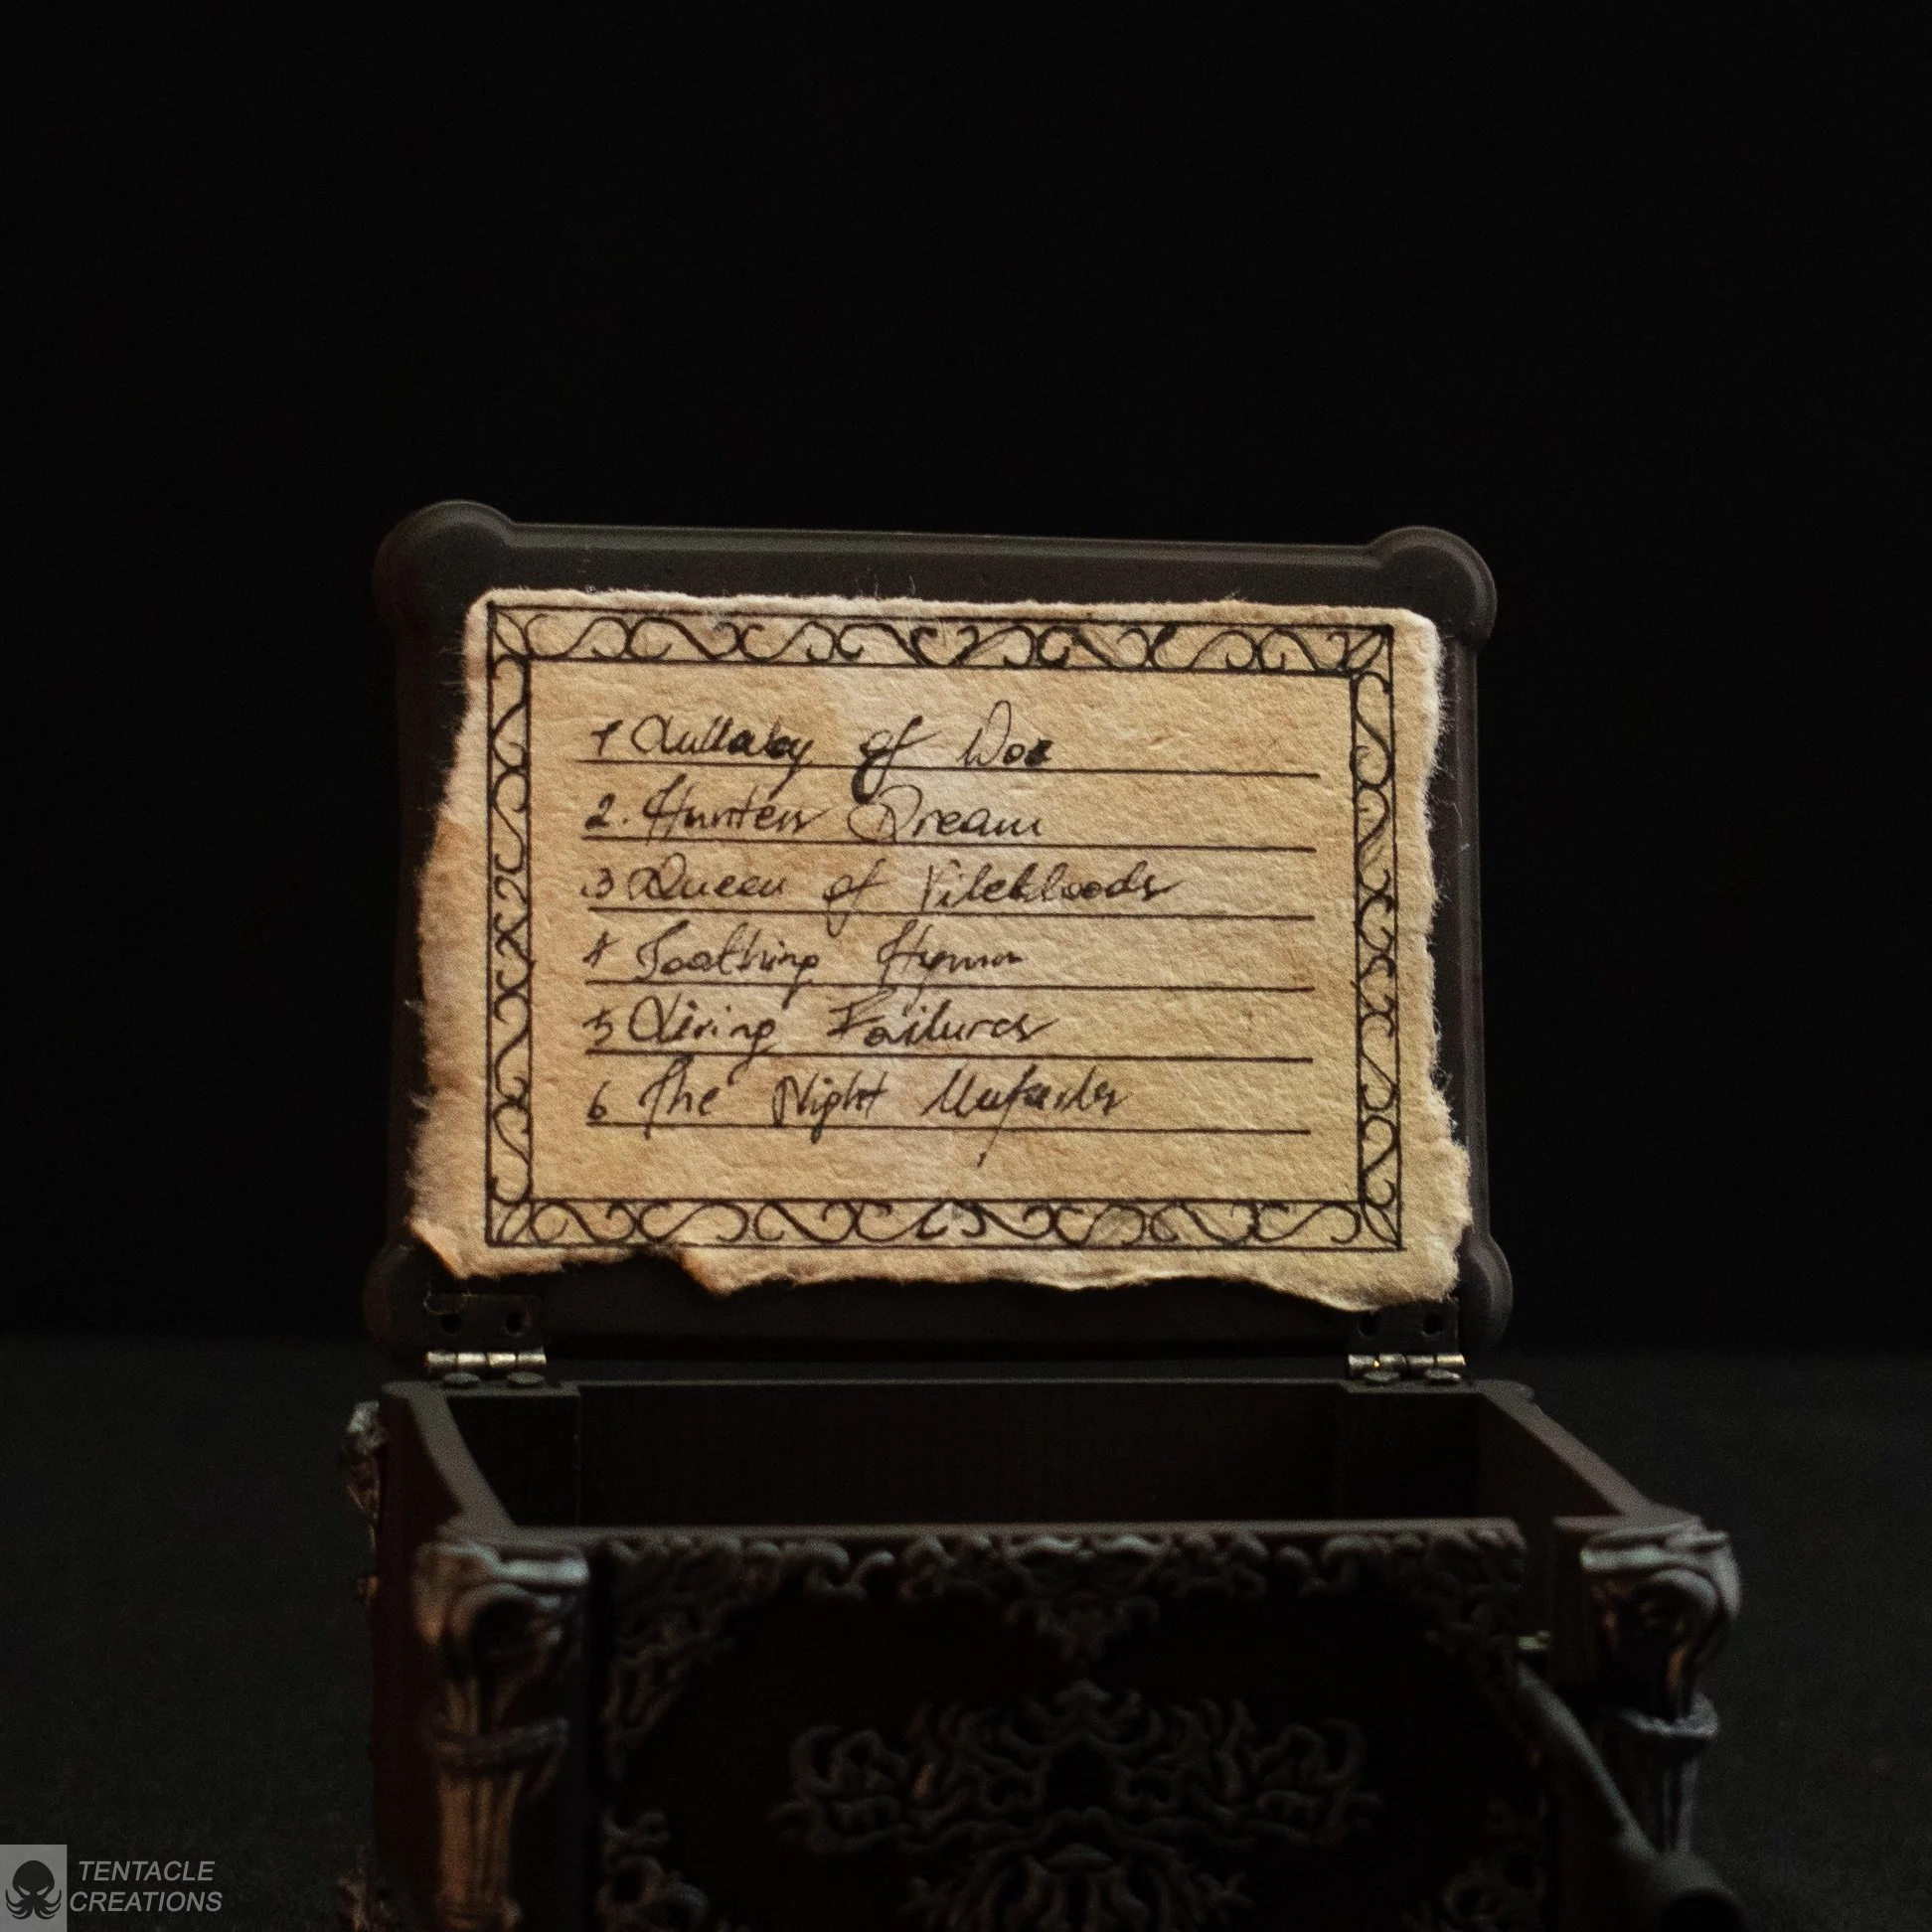 1 Lullaby of Woe
2. Hunters Dream
3 Queen of Vilebloods
4 Soothing Hymn
5 Living Failures
6 The Night Unfurls
TENTACLE
CREATIONS